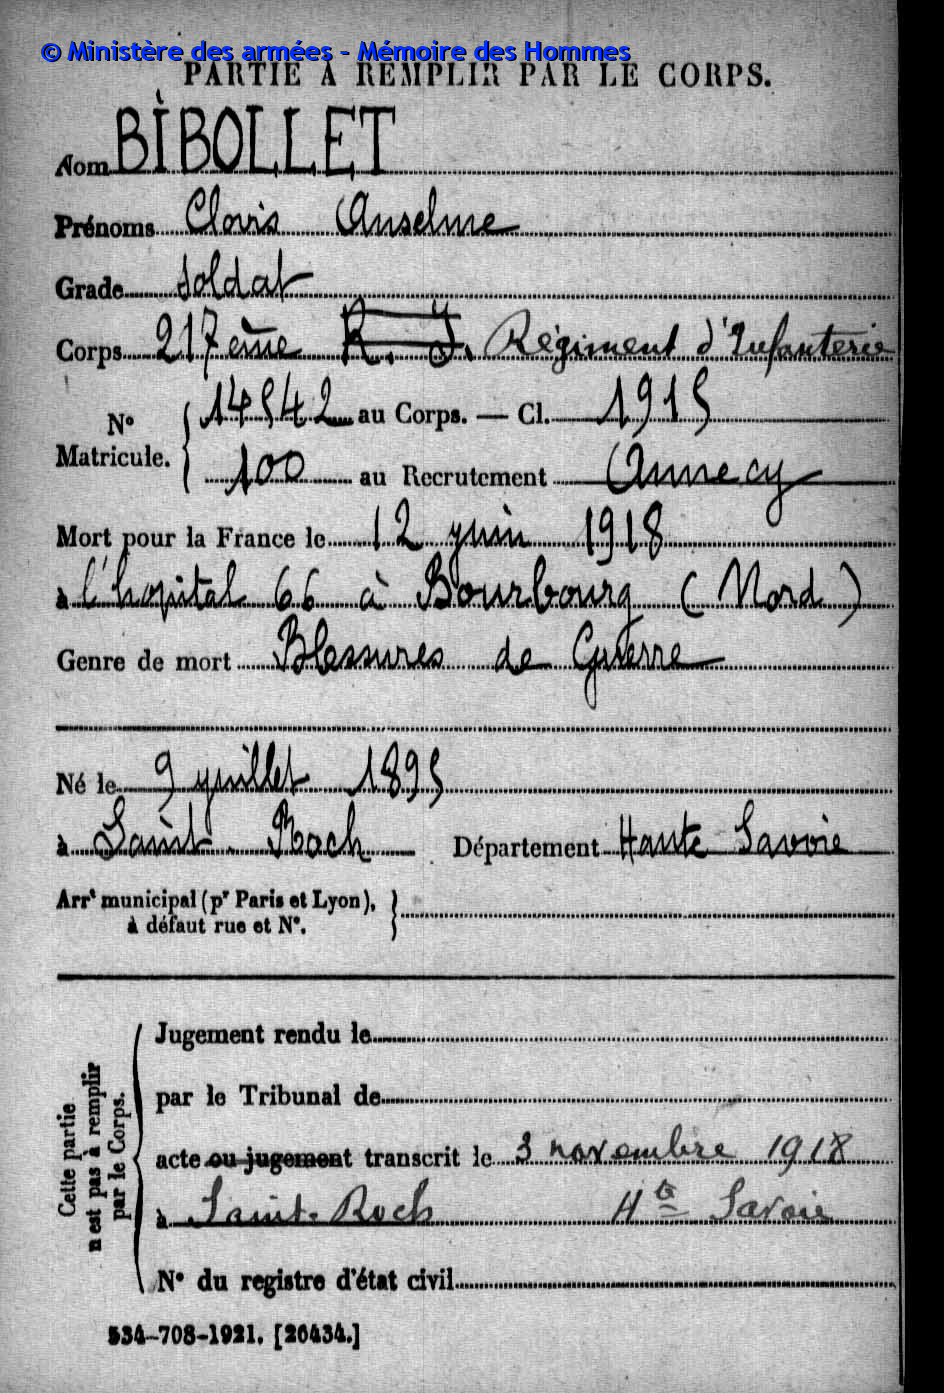 © Ministère des armées - Mémoire des Hommes
PARTIE À REMPLIR PAR LE CORPS.
Nom BIBOLLET
Prénoms Clovis Anselme
Grade Soldat
Corps 217ème R. I. Régiment d'Infanterie
N° Matricule. { 14542 au Corps. — Cl. 1915
100 au Recrutement Annecy
Mort pour la France le 12 juin 1918
à l'hopital 66 à Bourbourg (Nord)
Genre de mort Blessures de Guerre
Né le 9 juillet 1895
à Saint-Roch Département Haute Savoie
Arrt municipal (pr Paris et Lyon), }
à défaut rue et N°.
Cette partie n'est pas à remplir par le Corps.
Jugement rendu le
par le Tribunal de
acte ou jugement transcrit le 3 novembre 1918
à Saint-Roch Hte Savoie
N° du registre d'état civil
534-708-1921. [26434.]